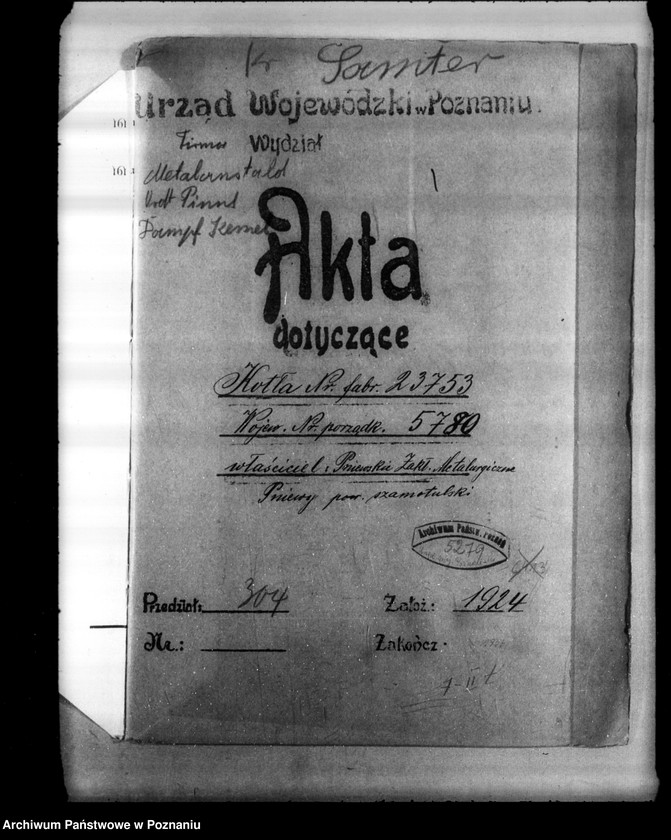 Kr Samter
Urząd Wojewódzki w Poznaniu.
Firma Wydział
161
161
Pinne
Dampf Kessel
Akta
dotyczące
Kotła Nr. fabr. 23753
Wojew. Nr. porządk. 5780
właściciel: Pniewskie Zakł. Metalurgiczne
Pniewy pow. szamotulski
Archiwum Państw. Poznań
5279
Przedział: 304 Założ.: 1924
Nr.: Zakończ.
Archiwum Państwowe w Poznaniu